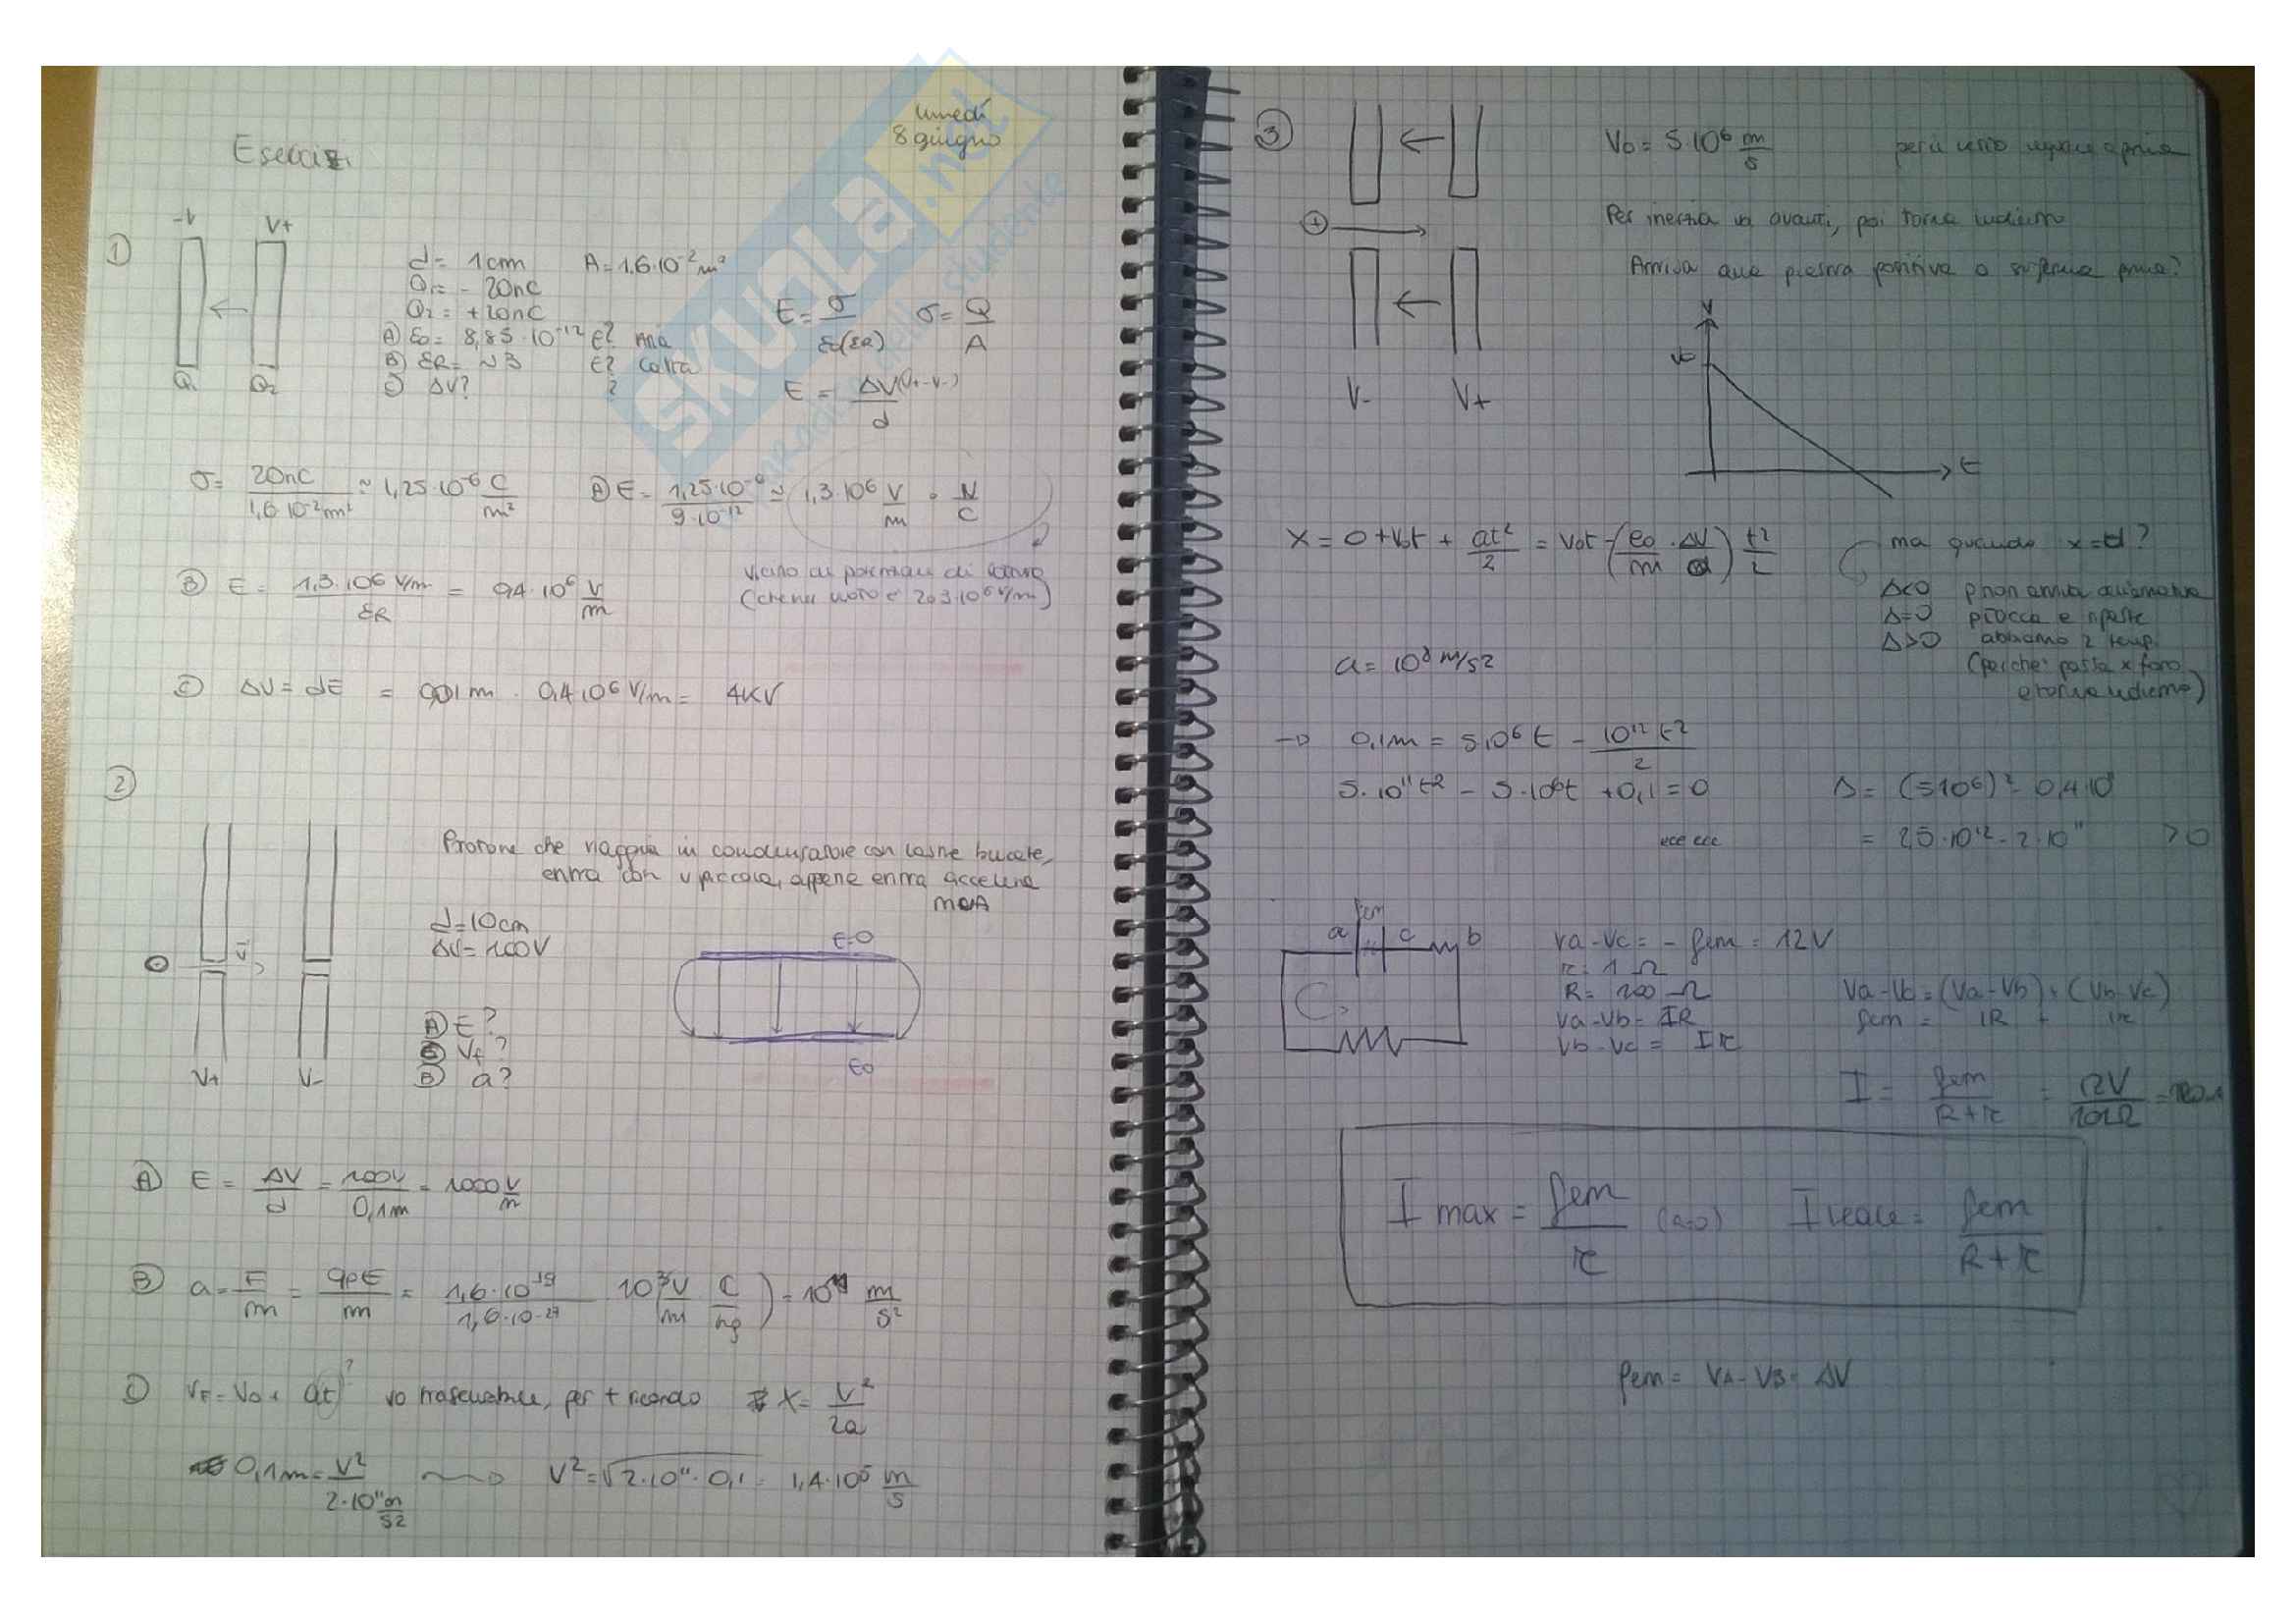 lunedì
8 giugno
Esercizi
1
-V V+
d= 1cm A=1,6·10⁻² m²
Q₁= - 20nC
Q₂= +20nC
A) ε0= 8,85·10⁻¹² E? Aria
B) εR= ~3 E? Carta
C) ΔV? ?
Q₁ Q₂
E= σ/ε0(εR) σ= Q/A
E = ΔV(V+-V-)/d
σ= 20nC/1,6·10⁻²m² ≈ 1,25·10⁻⁶ C/m²
A) E= 1,25·10⁻⁶/9·10⁻¹² ≈ 1,3·10⁶ V/m = N/C
B) E = 1,3·10⁶ V/m/εR = 0,4·10⁶ V/m
C) ΔV= dE = 0,01 m · 0,4·10⁶ V/m = 4KV
2
Protone che viaggia in condensatore con lastre bucate,
entra con v piccola, appena entra accelera
MRUA
d=10cm
ΔV=100V
E=0
A) E?
C) Vf?
B) a?
E0
V+ V-
A) E = ΔV/d = 100V/0,1m = 1000 V/m
B) a= F/m = qpE/m = 1,6·10⁻¹⁹/1,6·10⁻²⁷ 10³(V/m C/kg) = 10¹¹ m/s²
C) VF= V0+ at? v0 trascurabile, per t ricordo X= V²/2a
0,1m= V²/2·10¹¹ m/s² V²=√2·10¹¹·0,1 = 1,4·10⁵ m/s
3
V0= 5·10⁶ m/s
Per inerzia va avanti, poi torna indietro
Arriva alla piastra positiva o si ferma prima?
V- V+
V
v0
t
X = 0+V0t + at²/2 = V0t -(e0/m · ΔV/d) t²/2 ma quando x=d?
Δ<0 p non arriva all'armatura
Δ=0 p tocca e riparte
Δ>0 abbiamo 2 temp.
(perché passa x foro
e torna indietro)
a= 10⁸ m/s²
→ 0,1m = 5·10⁶ t - 10¹² t²/2
5·10¹¹t² - 5·10⁶t +0,1=0 Δ= (5·10⁶)²- 0,4·10
ecc ecc = 25·10¹² - 2·10¹¹ >0
fem
a c b
Va-Vc= - fem = 12V
r= 1 Ω
R= 100 Ω
Va-Vb= IR
Vb-Vc= Ir
Va-Vc=(Va-Vb)+(Vb-Vc)
fem = IR + Ir
I = fem/R+r = 12V/101Ω
I max = fem/r (R=0) I reale = fem/R+r
fem= VA-VB= ΔV